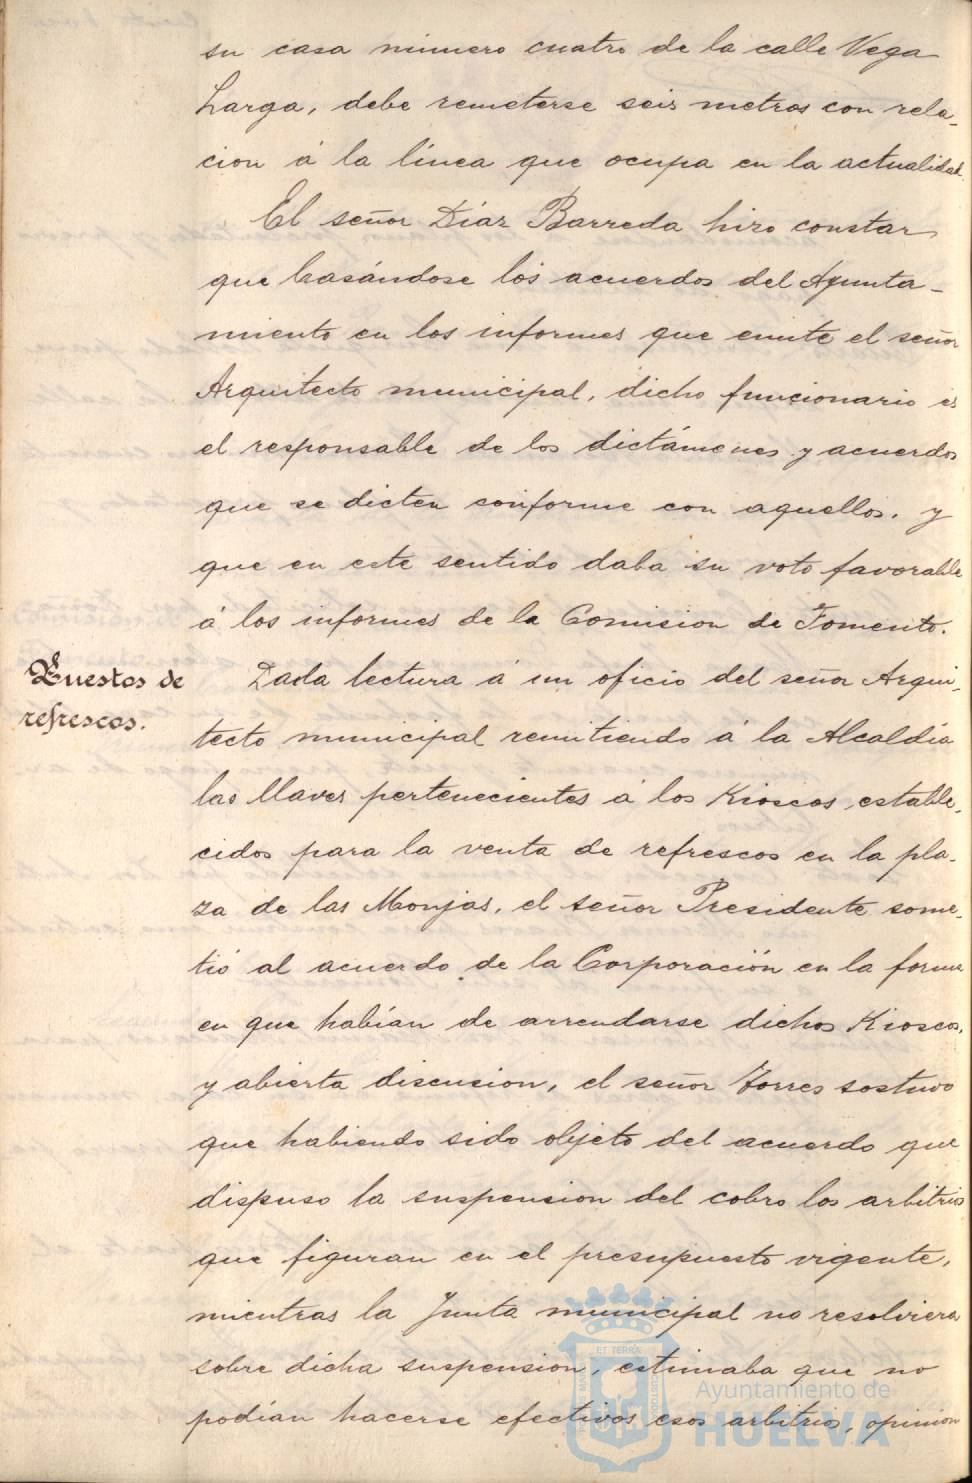 su casa número cuatro de la calle Vega
Larga, debe remeterse seis metros con rela-
cion á la línea que ocupa en la actualidad.
El señor Díaz Barreda hizo constar
que basándose los acuerdos del Ayunta-
miento en los informes que emite el señor
Arquitecto municipal, dicho funcionario es
el responsable de los dictámenes y acuerdos
que se dicten conforme con aquellos, y
que en este sentido daba su voto favorable
á los informes de la Comision de Fomento.
Puestos de
refrescos.
Dada lectura á un oficio del señor Arqui-
tecto municipal remitiendo á la Alcaldía
las llaves pertenecientes á los Kioscos estable-
cidos para la venta de refrescos en la pla-
za de las Monjas, el señor Presidente some-
tió al acuerdo de la Corporación en la forma
en que habían de arrendarse dichos Kioscos,
y abierta discusion, el señor Torres sostuvo
que habiendo sido objeto del acuerdo que
dispuso la suspension del cobro los arbitrios
que figuran en el presupuesto vigente,
mientras la Junta municipal no resolviera
sobre dicha suspension, estimaba que no
podían hacerse efectivos esos arbitrios, opinion
ET TERRÆ
Ayuntamiento de
HUELVA